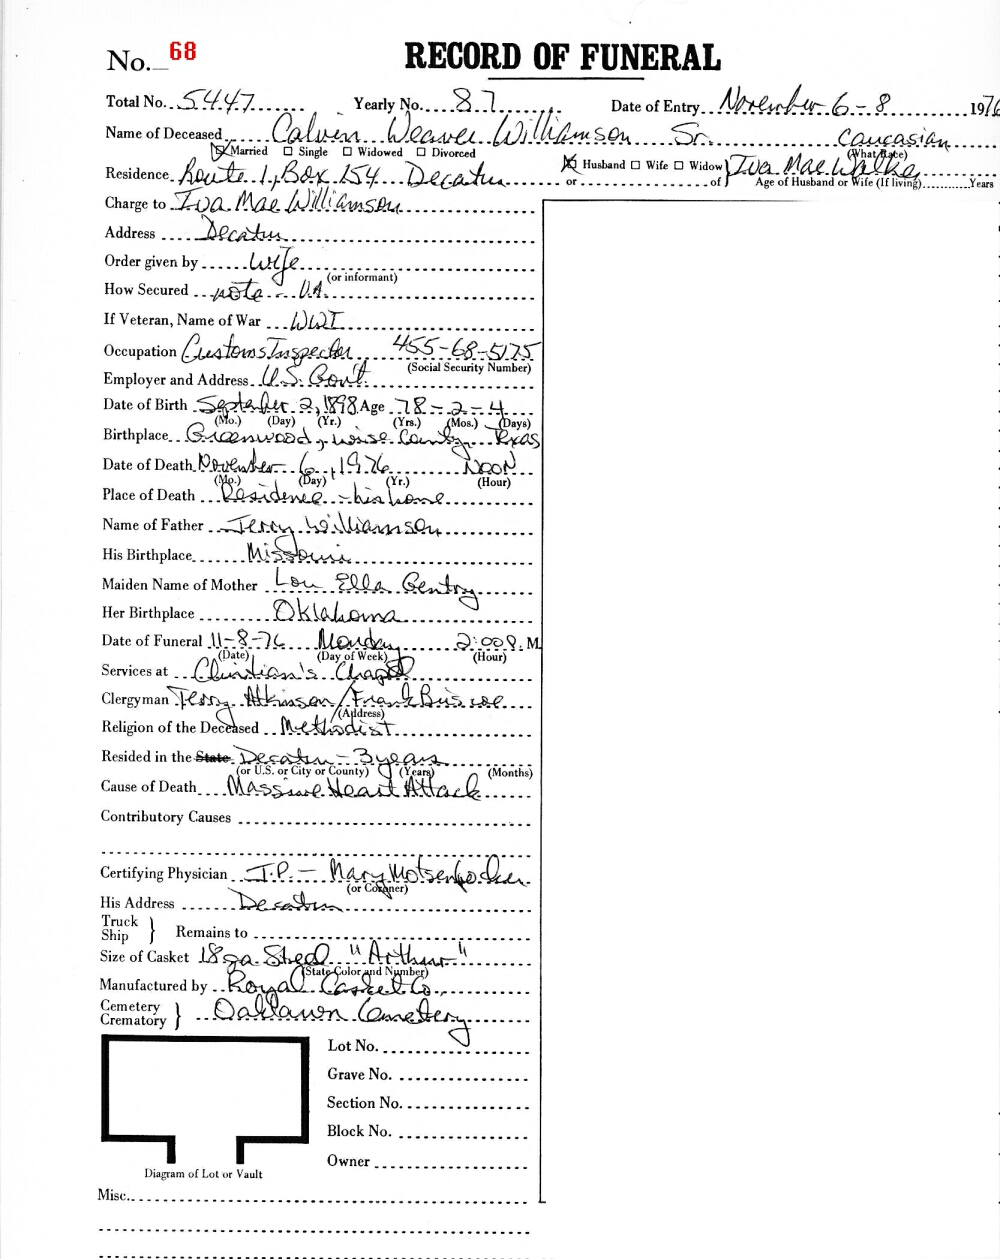 No. 68 RECORD OF FUNERAL
Total No. 5447 Yearly No. 87 Date of Entry November 6-8 1976
Name of Deceased Calvin Weaver Williamson Sr. Caucasian
Married Single Widowed Divorced (What Race)
Husband Wife Widow Iva Mae Walker
Residence Route 1, Box 154 Decatur or of Age of Husband or Wife (If living) Years
Charge to Iva Mae Williamson
Address Decatur
Order given by wife
(or informant)
How Secured note - V.A.
If Veteran, Name of War WWI
Occupation Customs Inspector 455-68-5175
(Social Security Number)
Employer and Address U.S. Gov't
Date of Birth September 2, 1898 Age 78 - 2 - 4
(Mo.) (Day) (Yr.) (Yrs.) (Mos.) (Days)
Birthplace Greenwood, Wise County, Texas
Date of Death November 6, 1976 NOON
(Mo.) (Day) (Yr.) (Hour)
Place of Death Residence - his home
Name of Father Jerry Williamson
His Birthplace Missouri
Maiden Name of Mother Lou Ella Gentry
Her Birthplace Oklahoma
Date of Funeral 11-8-76 Monday 2:00 P. M
(Date) (Day of Week) (Hour)
Services at Christian's Chapel
Clergyman Terry Atkinson/Frank Briscoe
(Address)
Religion of the Deceased Methodist
Resided in the State Decatur - 3 years
(or U.S. or City or County) (Years) (Months)
Cause of Death Massive Heart Attack
Contributory Causes
Certifying Physician J.P. - Mary Motsenbocker
(or Coroner)
His Address Decatur
Truck
Ship } Remains to
Size of Casket 18 ga. Steel "Arthur"
(State Color and Number)
Manufactured by Royal Casket Co.
Cemetery
Crematory } Oaklawn Cemetery
Lot No.
Grave No.
Section No.
Block No.
Owner
Diagram of Lot or Vault
Misc.